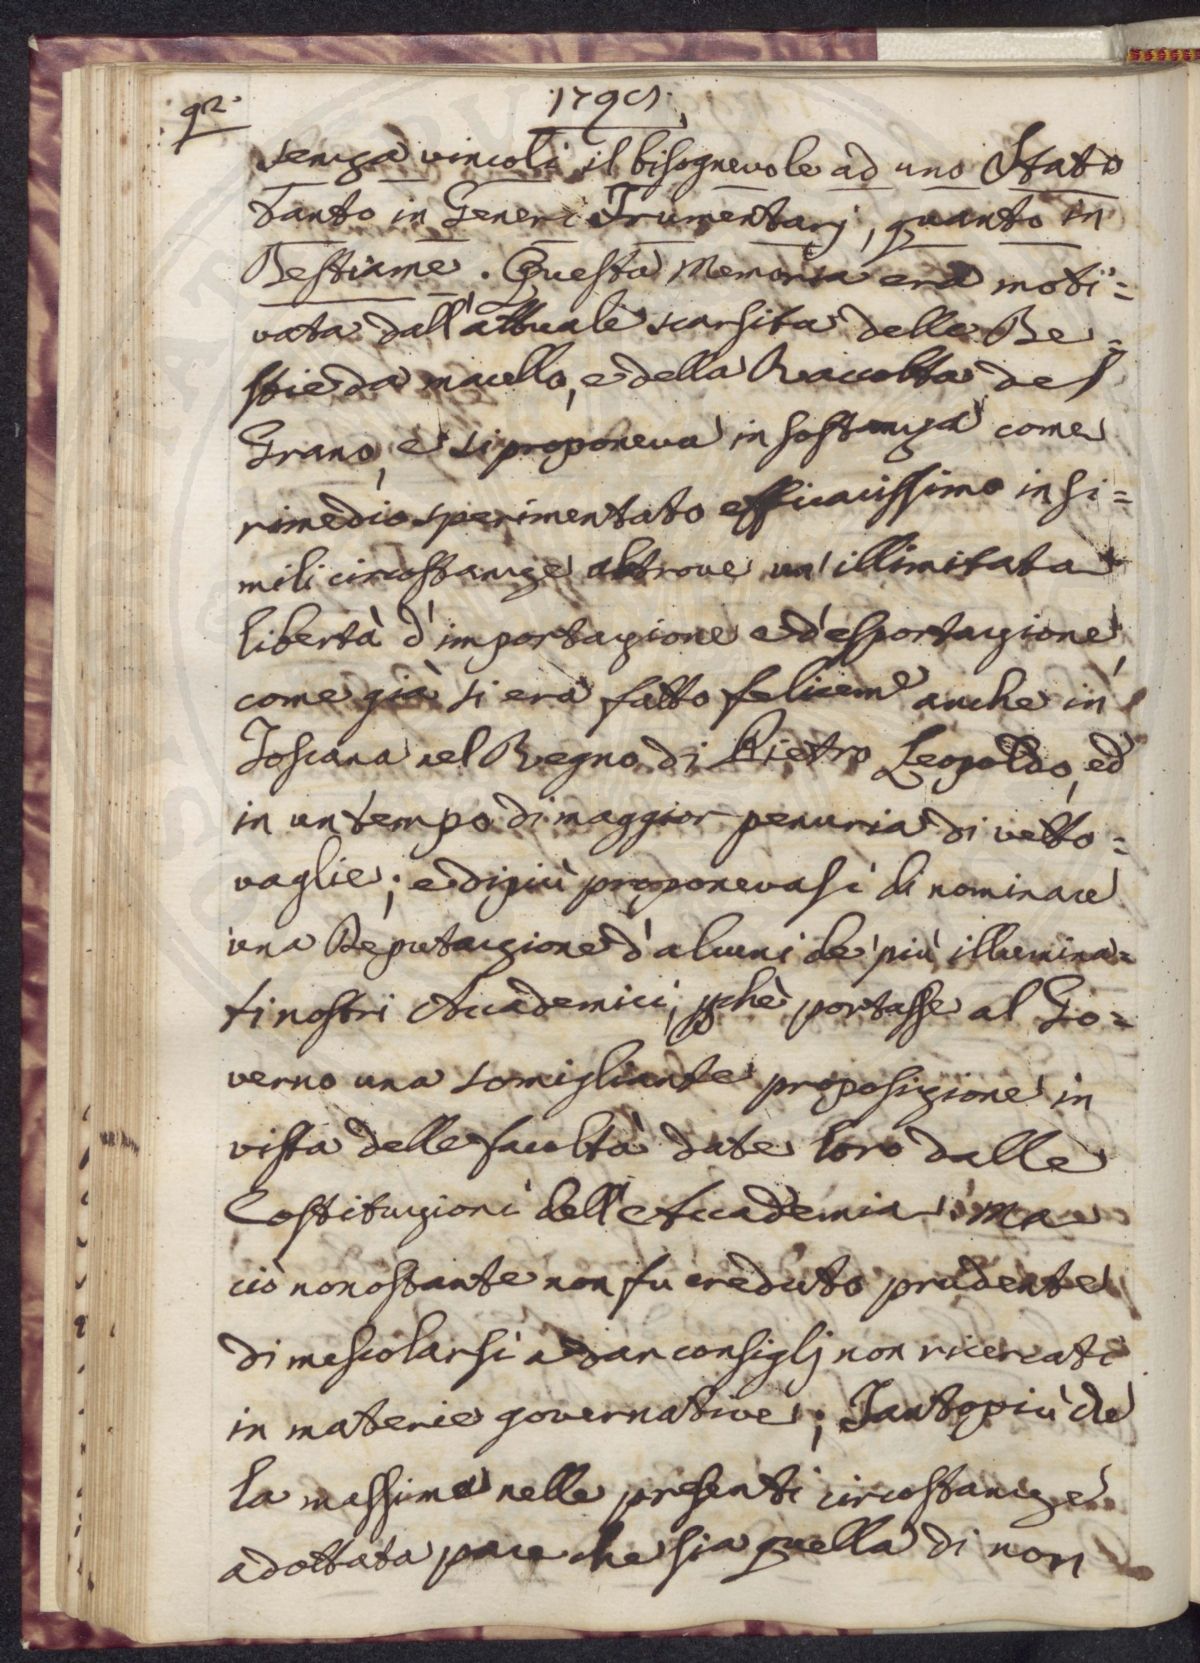 92.
1795.
senza vincoli il bisognevole ad uno Stato
tanto in Generi Frumentarj, quanto in
Bestiame. Questa Memoria era moti=
vata dall'attuale scarsita delle Be=
stie da macello, e della Raccolta del
Grano, e si proponeva in sostanza come
rimedio sperimentato efficacissimo in si=
mili circostanze altrove un'illimitata
libertà d'importazione e d'esportazione
come già si era fatto feliceme anche in
Toscana nel Regno di Pietro Leopoldo, ed
in un tempo di maggior penuria di vetto=
vaglie; e di più proponevasi di nominare
una Deputazione d'alcuni de' più illumina=
ti nostri Accademici, pchè portasse al Go=
verno una somigliante proposizione in
vista delle facoltà date loro dalle
Costituzioni dell'Accademia. Ma
ciò nonostante non fu creduto prudente
di mescolarsi a dar consiglj non ricercati
in materie governative; Tanto più che
la massima nelle presenti circostanze
adottata pare che sia quella di non